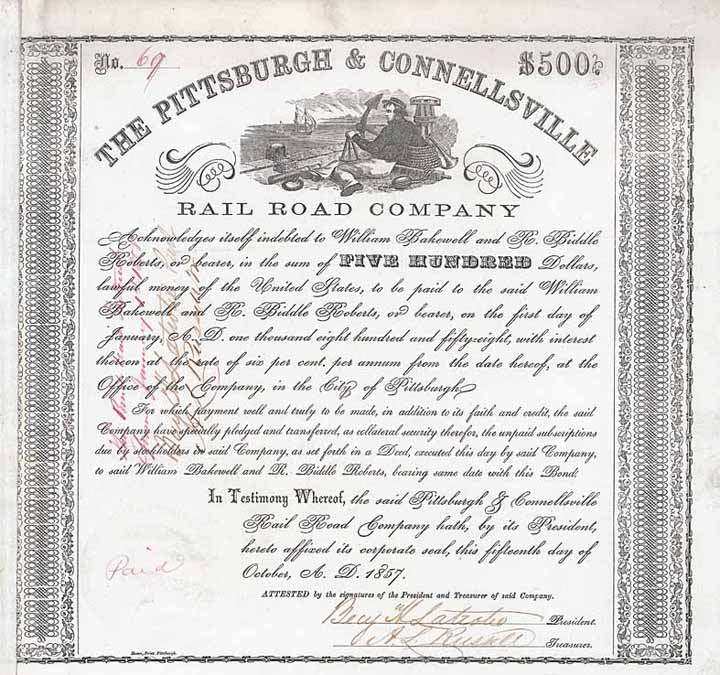 No. 69
$500
THE PITTSBURGH & CONNELLSVILLE
RAIL ROAD COMPANY
Acknowledges itself indebted to William Bakewell and R. Biddle
Roberts, or bearer, in the sum of FIVE HUNDRED Dollars,
lawful money of the United States, to be paid to the said William
Bakewell and R. Biddle Roberts, or bearer, on the first day of
January, A. D. one thousand eight hundred and fifty-eight, with interest
thereon at the rate of six per cent. per annum from the date hereof, at the
Office of the Company, in the City of Pittsburgh.
For which payment well and truly to be made, in addition to its faith and credit, the said
Company have specially pledged and transferred, as collateral security therefor, the unpaid subscriptions
due by stockholders in said Company, as set forth in a Deed, executed this day by said Company,
to said William Bakewell and R. Biddle Roberts, bearing same date with this Bond.
In Testimony Whereof, the said Pittsburgh & Connellsville
Rail Road Company hath, by its President,
hereto affixed its corporate seal, this fifteenth day of
October, A. D. 1857.
Paid
ATTESTED by the signatures of the President and Treasurer of said Company.
Benj H Latrobe President.
Treasurer.